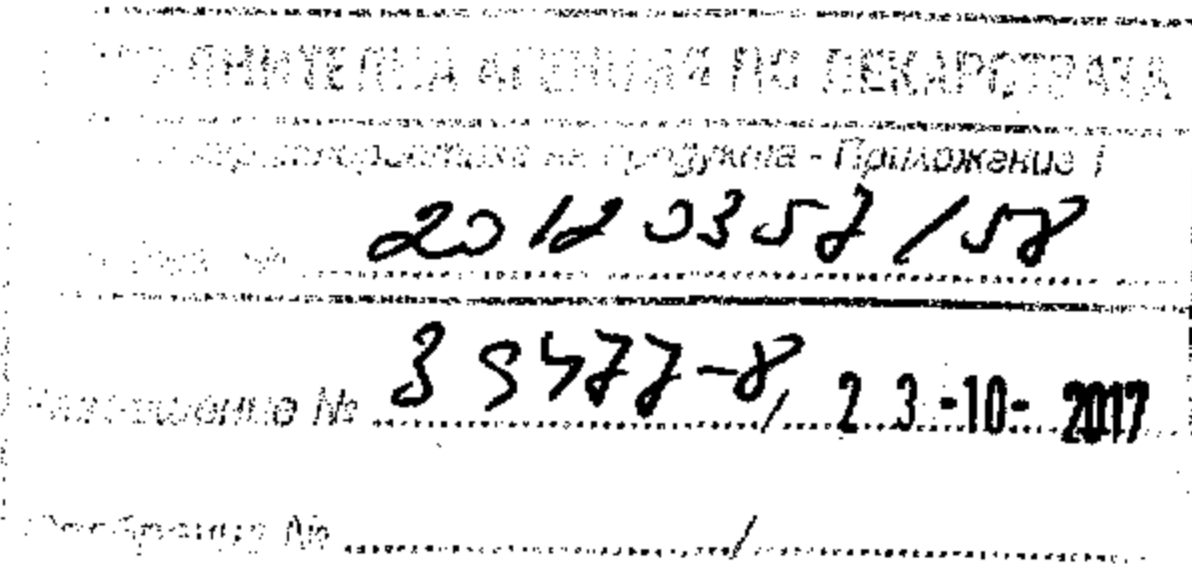 ИЗПЪЛНИТЕЛНА АГЕНЦИЯ ПО ЛЕКАРСТВАТА
характеристика на продукта - Приложение 1
Рег. № 20120357/58
Разрешение № 39477-8, 23-10-2017
Одобрение № /